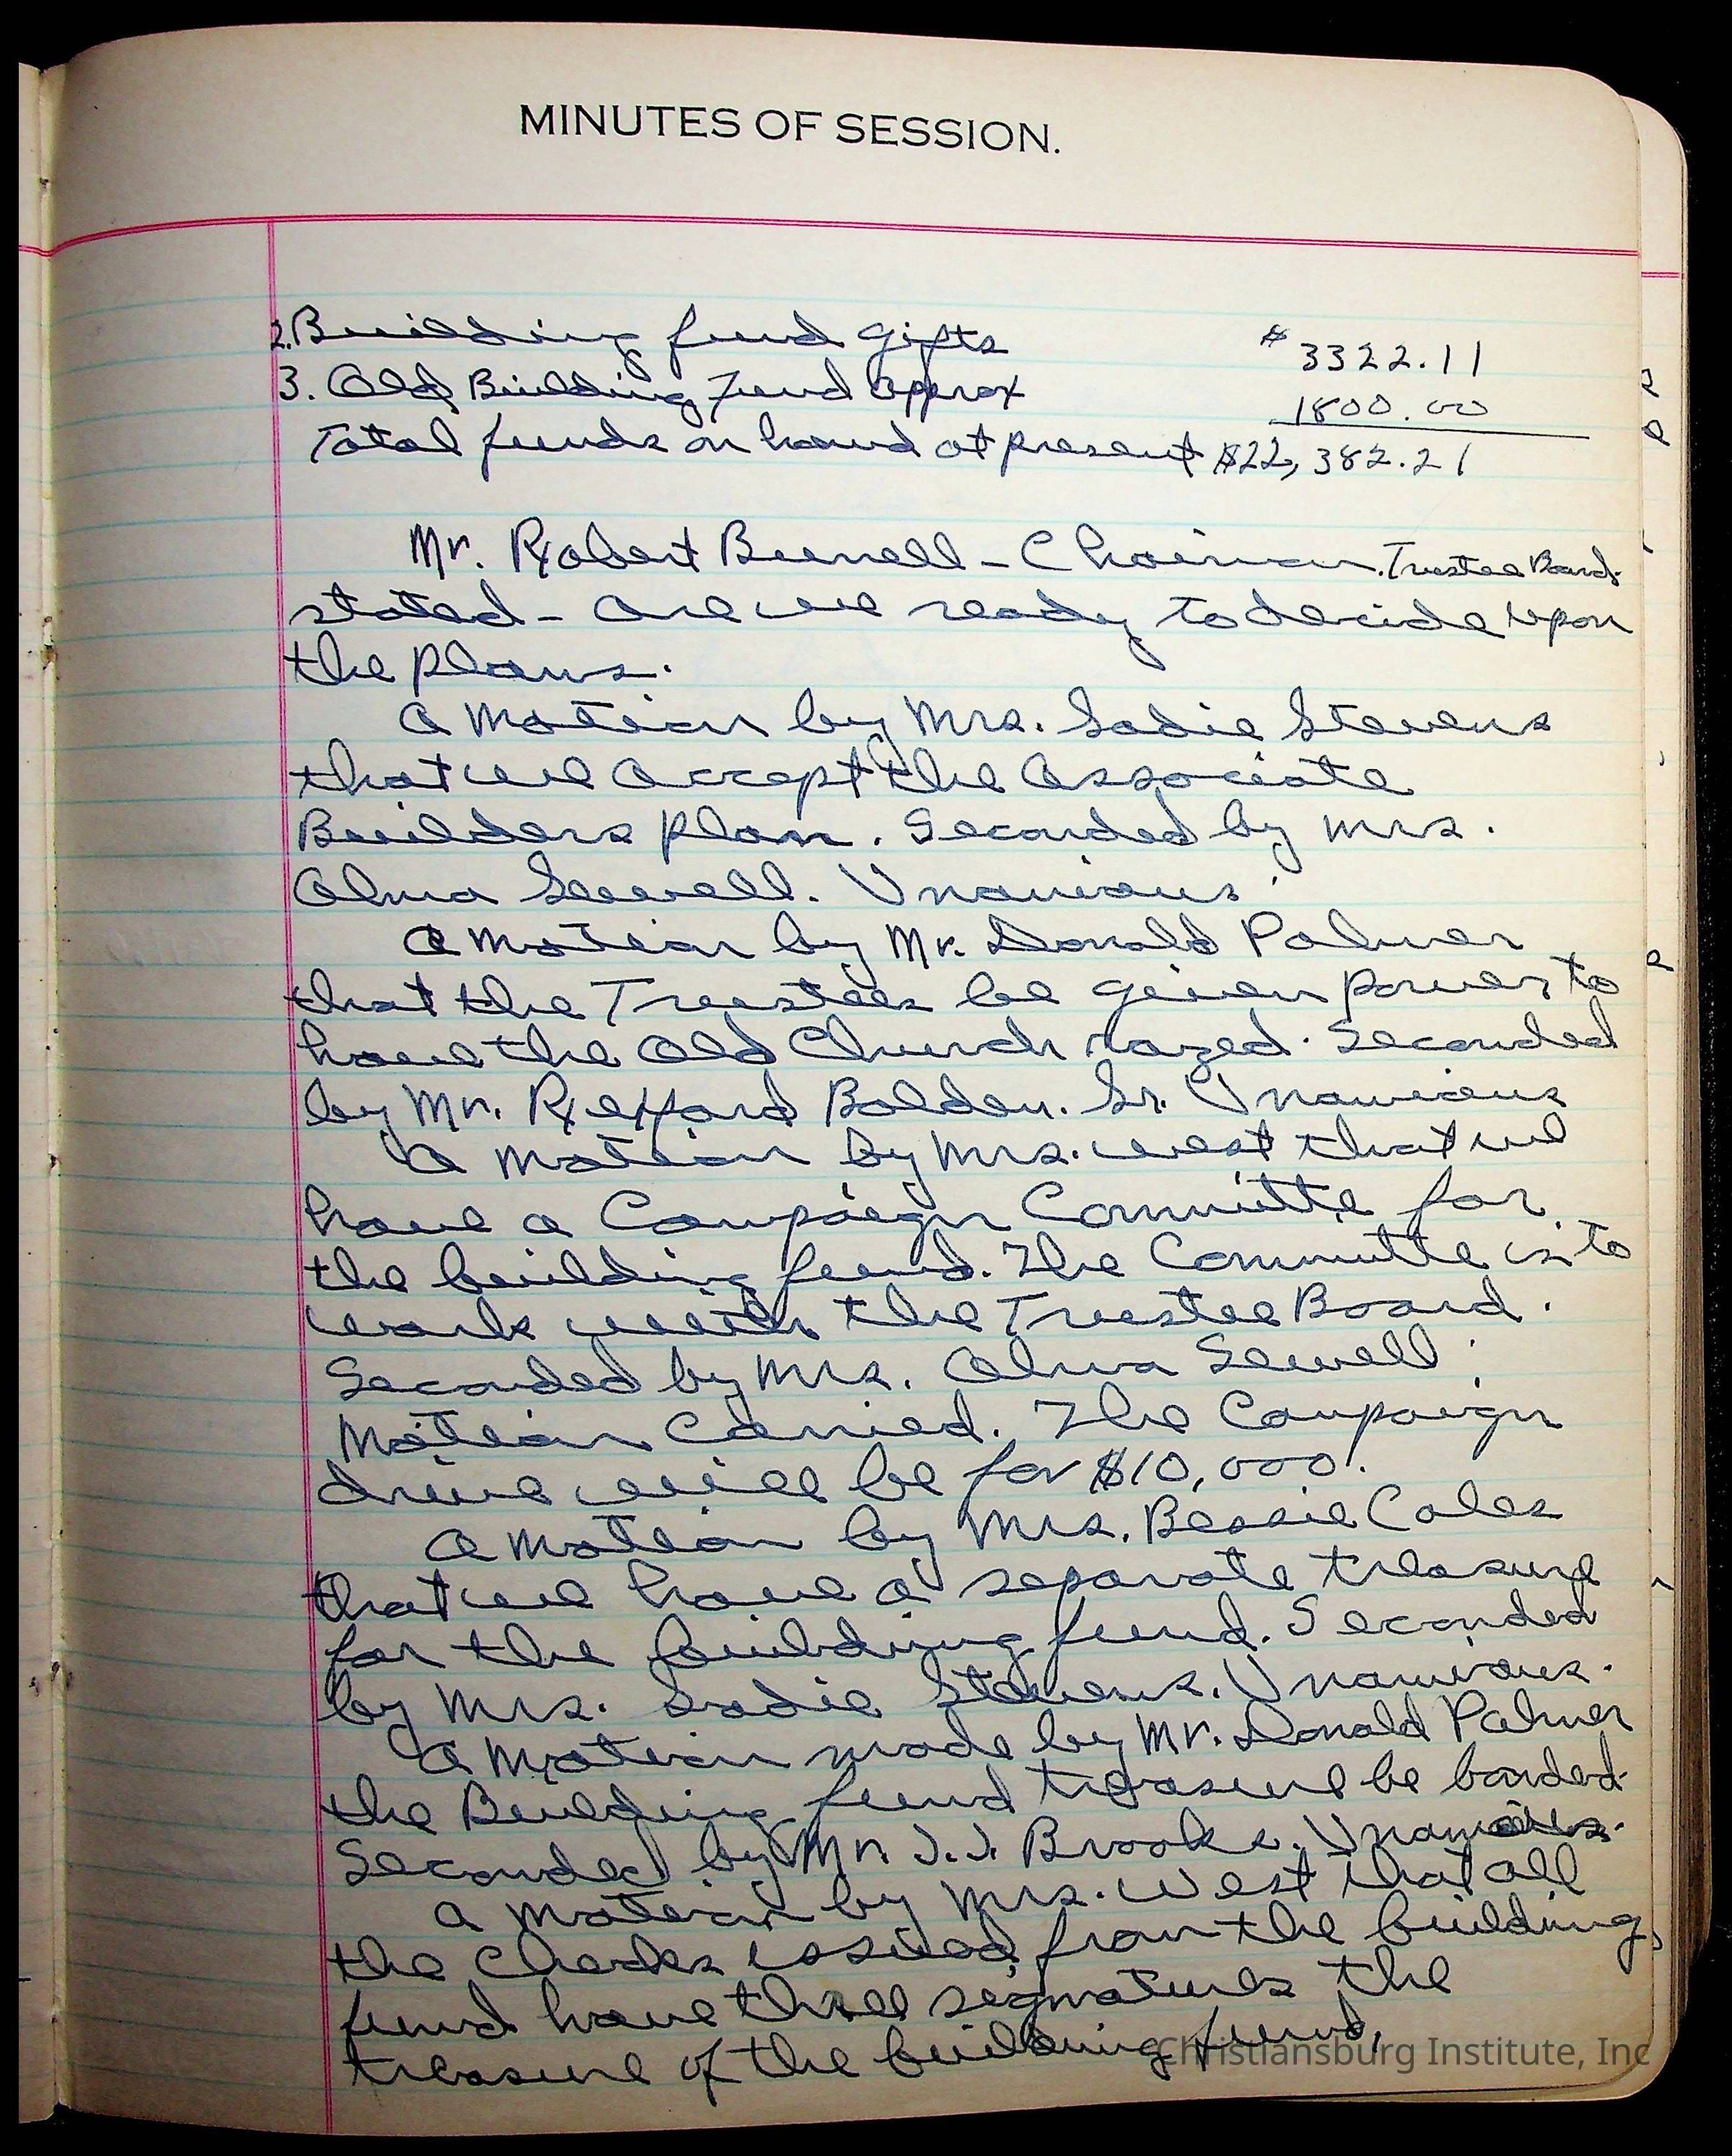 MINUTES OF SESSION.
2. Building fund gifts $ 3322.11
3. Old Building Fund Approx 1800.00
Total funds on hand at present $22,382.21
Mr. Robert Bunell - Chairman. Trustee Board.
stated - are we ready to decide upon
the plans.
A motion by Mrs. Sadie Stevens
that we accept the Associate
Builders plan. Seconded by Mrs.
Alma Sewell. Unanious.
A motion by Mr. Donald Palmer
that the Trustees be given power to
have the Old Church razed. Seconded
by Mr. Rexford Bolden. Sr. Unanious
A motion by Mrs. West that we
have a Campaign Committe for
the building fund. The Committe is to
work with the Trustee Board.
Seconded by Mrs. Alma Sewell.
Motion Carried. The Campaign
drive will be for $10,000.
A motion by Mrs. Bessie Coles
that we have a separate treasure
for the building fund. Seconded
by Mrs. Sadie Stevens. Unanious.
A motion made by Mr. Donald Palmer
the Building fund treasure be bonded.
Seconded by Mr. J.J. Brooks. Unanious.
A motion by Mrs. West that all
the checks issued from the building
fund have three signatures the
treasure of the building fund,
Christiansburg Institute, Inc